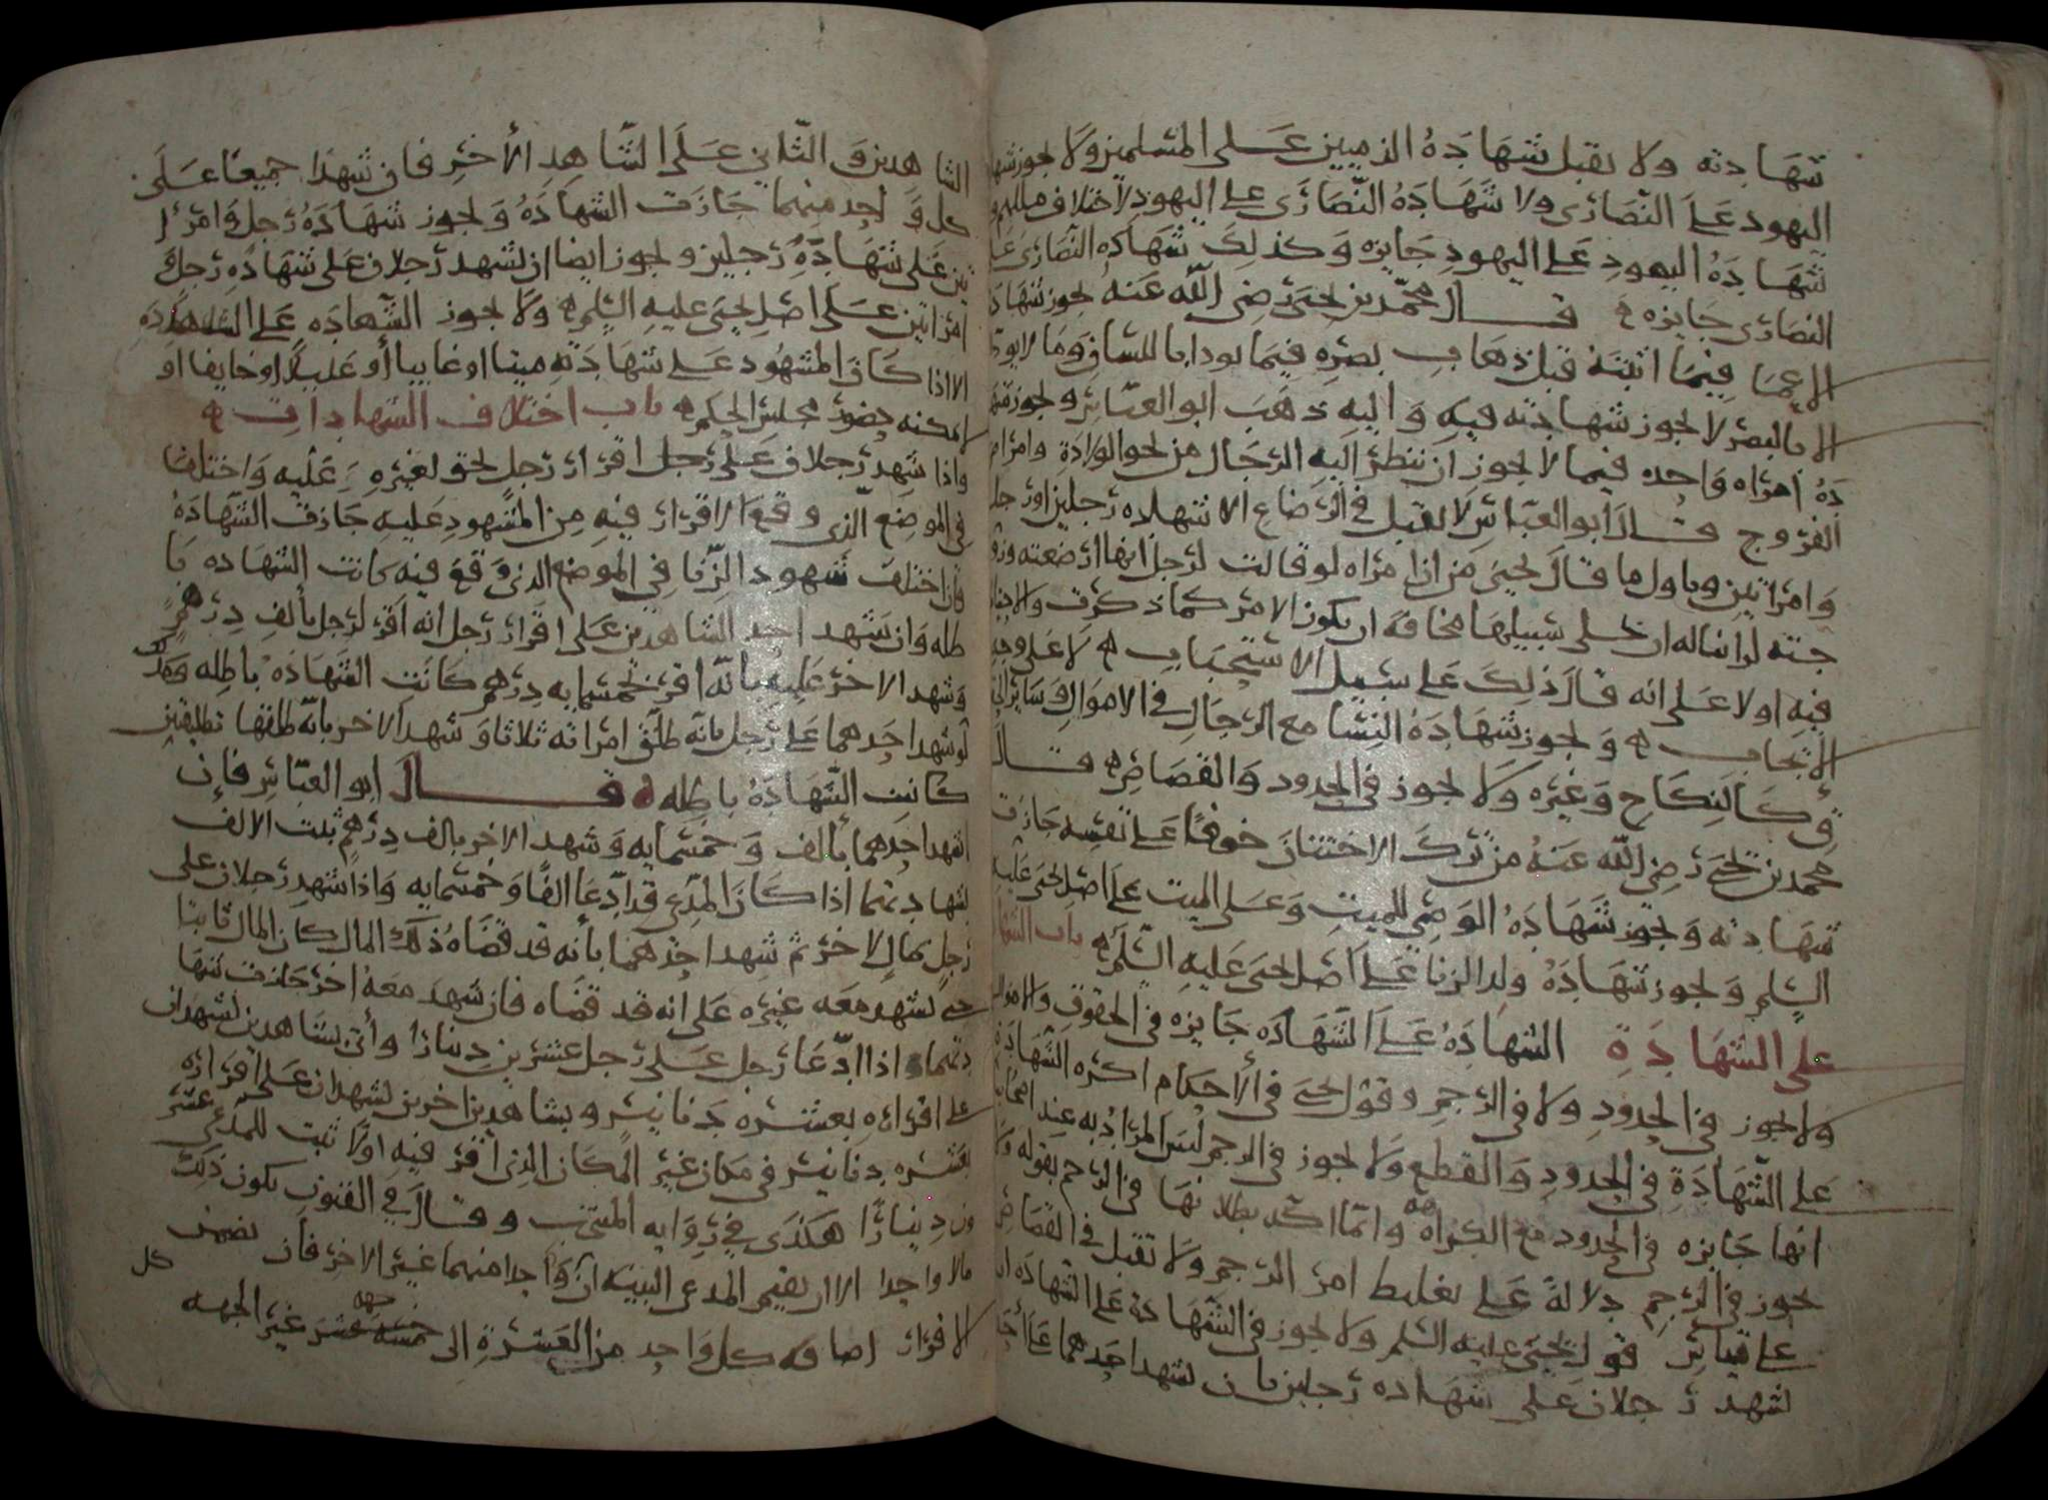 شهادته ولا تقبل شهادة الذميين على المسلمين ولا تجوز شها
اليهود على النصارى ولا شهادة النصارى على اليهود لاختلاف مللهم و
شهادة اليهود على اليهود جايزه وكذلك شهادة النصارى على
النصارى جايزه قال محمد بن يحيى رضي الله عنه تجوز شهادة
الاعما فيما اثبته قبل ذهاب بصره فيما
الا بالبصر لا تجوز شهادته فيه واليه ذهب ابو العباس وتجوز شها
دة امراه واحده فيما لا يجوز ان ينظر اليه الرجال من نحو الولادة وامراض
الفروج قال ابو العباس لا تقبل في الرضاع الا شهاده رجلين او رجل
وامراتين وتاول ما قال يحيى من ان امراه لو قالت لرجل انها ارضعته وزو
جته له ان خلى سبيلها مخافة ان يكون الامر كما ذكرت
فيه اولا على انه قال ذلك على سبيل الاستحباب لا على وجه
الايجاب وتجوز شهادة النسا مع الرجال في الاموال وساير الحقو
ق كالنكاح وغيره ولا تجوز في الحدود والقصاص قال
محمد بن يحيى رضي الله عنه من ترك الاختتان خوفا على نفسه جازت
شهادته وتجوز شهادة الوصي للميت وعلى الميت على اصل يحيى عليه
السلم وتجوز شهادة ولد الزنا على اصل يحيى عليه السلم باب الشهادة
على الشهادة الشهادة على الشهاده جايزه في الحقوق والاموال
ولا تجوز في الحدود ولا في الرجم وقول يحيى في الاحكام اكره الشهادة
على الشهادة في الحدود والقطع ولا تجوز في الرجم ليس المراد به عند اصحابنا
انها جايزه في الحدود مع الكراهه وانما اكد بطلانها في الرجم بقوله ولا
تجوز في الرجم دلالة على تغليط امر الرجم ولا تقبل في القصاص
على قياس قول يحيى عليه السلم ولا تجوز في الشهادة على الشهاده ان
يشهد رجلان على شهاده رجلين بان يشهد احدهما على احد
الشاهدين والثاني على الشاهد الاخر فان شهدا جميعا على
كل واحد منهما جازت الشهادة وتجوز شهادة رجل وامرا
تين على شهادة رجلين وتجوز ايضا ان يشهد رجلان على شهادة رجل و
امراتين على اصل يحيى عليه السلم ولا تجوز الشهاده على الشهاده
الا اذا كان المشهود على شهادته ميتا او غايبا أو عليلا او خايفا او
لا يمكنه حضور مجلس الحكم باب اختلاف الشهادات
واذا شهد رجلان على رجل اقرار رجل بحق لغيره عليه واختلفا
في الموضع الذي وقع الاقرار فيه من المشهود عليه جازت الشهادة
فان اختلف شهود الزنا في الموضع الذي وقع فيه كانت الشهاده با
طله وان شهد احد الشاهدين على اقرار رجل انه اقر لرجل بألف درهم
وشهد الاخر عليه بأنه اقر بخمسمايه درهم كانت الشهادة باطله وكذلك
لو شهد احدهما على رجل بانه طلق امراته ثلاثا وشهد الاخر بانه طلقها تطليقتين
كانت الشهادة باطله قال ابو العباس فإن
شهد احدهما بألف وخمسمايه وشهد الاخر بالف درهم ثبت الالف
بشهادتهما اذا كان المدعي قد ادعا الفا وخمسمايه واذا شهد رجلان على
رجل بمال لاخر ثم شهد احدهما بأنه قد قضاه ذلك المال كان المال ثابتا
حتى يشهد معه غيره على انه قد قضاه فان شهد معه اخر جازت شها
دتهما واذا ادعا رجل على رجل عشرين دينارا وأتى بشاهدين يشهدان
على اقراره بعشره دنانير وبشاهدين اخرين يشهدان على اقراره
بعشره دنانير في مكان غير المكان الذي أقر فيه اولا ثبت للمدعي عشر
ون دينارا هكذى في رواية المنتخب وقال في الفنون يكون ذلك
مالا واحدا الا ان يقيم المدعي البينه ان واحدا منهما غير الاخر فان تضمن كل
الاقرار اضافه كل واحد من العشرة الى جهه غير الجهه